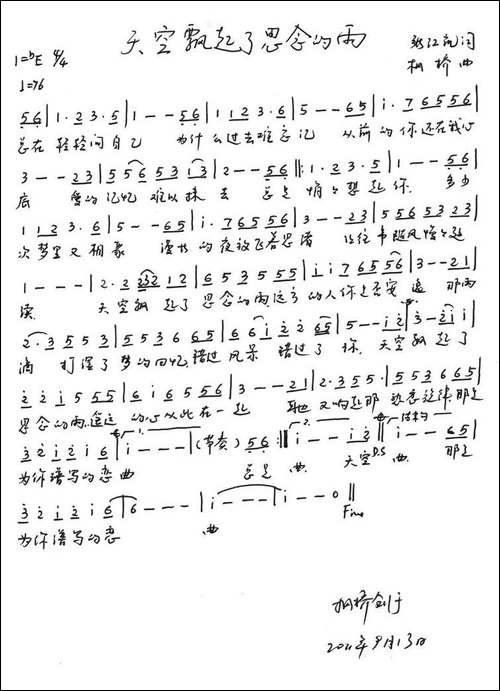 天空飘起了思念的雨
1=bE 4/4
词
桐桥 曲
♩=76
56|1·23·5|1--56|1123·6|5--65|i·76556|
总在 轻轻问自己 为什么过去难忘记 从前的你还在我心
3--23|5565313|2--56‖:1·23·5|1--56|
底 的记忆 难以抹去 总是 悄悄想起你 多少
1123·6|5--65|i·76556|3--23|5565323|
次梦里又相聚 漫长的夜放飞着思绪 往事随风
1---|2·223212|6535555|ii76556|3--21|
天空飘起了思念的雨 远方的人你是否安 那雨
2·3555|5553665|66i2265|5--i2|3-2ii|
滴 打湿了梦的回忆 错过风景 错过了你 天空飘起了
22i555|6i6556|3--21|2·355·|5553665|
思念的雨 遥远的心从此在一起 耳边又响起那 恋旋律 那是
32i2i6|i---|(节奏)56:‖i--i2‖i--65|
为你谱写的恋曲 总是 曲 天空 D.S 曲 那是
32i2i6|6---|i---|i--0‖
Fine
为你谱写的恋 曲
桐桥创于
2011年9月13日